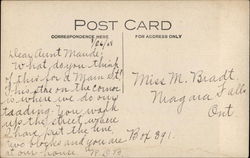 POST CARD
CORRESPONDENCE HERE
FOR ADDRESS ONLY
Dear Aunt Maude;
What do you think
of this for a Main St?
This store on the corner
is where we do our
trading. You walk
up the street where
I have put the line,
two blocks and you are
at our house.
Miss M. Bradt
Niagara Falls
Ont
Box 391.